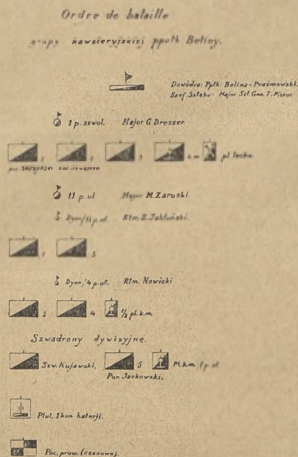 Ordre de bataille
grupy kawaleryjskiej ppułk Beliny.
Dowódca: Ppłk. Belina-Prażmowski.
Szef Sztabu - Major Szt. Gen. T. Piskor
1 p. szwol. Major G. Dreszer
1 2 3 k.m pl. techn.
11 p. ul Major M. Zaruski.
Dyon/11 p. uł. Rtm. Z. Jabłoński.
1 3
Dyon/4 p. uł. Rtm. Nowicki
3 4 ½ pl. k.m
Szwadrony dywizyjne.
Szw. Kujawski. 5 Pl. k.m 1 p. ul
Por. Jackowski.
Plut. 1 kon baterji.
Poc. prow. (czasowo).